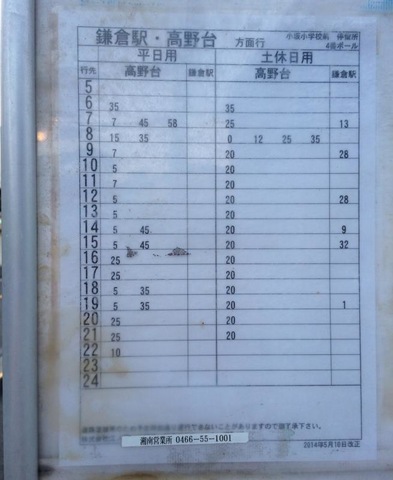 鎌倉駅・高野台 方面行 小坂小学校前 停留所
4番ポール
平日用 土休日用
行先 高野台 鎌倉駅 高野台 鎌倉駅
5
6 35 35
7 7 45 58 25 13
8 15 35 0 12 25 35
9 7 20 28
10 5 20
11 7 20
12 5 20 28
13 5 20
14 5 45 20 9
15 5 45 20 32
16 25 20
17 25 20
18 5 35 20
19 5 35 20 1
20 25 20
21 25 20
22 10
23
24
ありますので御了承下さい。
湘南営業所 0466-55-1001
2014年5月10日改正